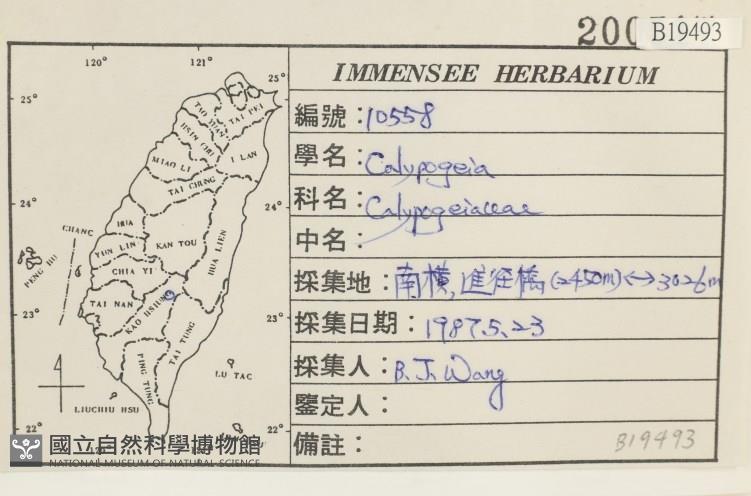 200
B19493
IMMENSEE HERBARIUM
編號：10558
學名：Calypogeia
科名：Calypogeiaceae
中名：
採集地：南橫,進徑橋(2450m)<->3026m
採集日期：1987.5.23
採集人：B.J.Wang
鑒定人：
備註：
B19493
120° 121°
25° 25°
TAI PEI
TAO YUAN
HSIN CHU
I LAN
MIAO LI
TAI CHUNG
24° 24°
CHANG HUA
YUN LIN
KAN TOU
HUA LIEN
PENG HU
CHIA YI
TAI NAN
KAO HSIUNG
23° 23°
TAI TUNG
PING TUNG
LU TAC
LIUCHIU HSU
22° 22°
國立自然科學博物館
NATIONAL MUSEUM OF NATURAL SCIENCE